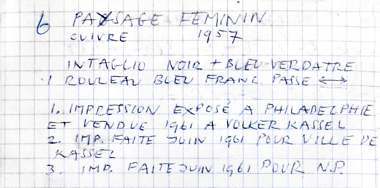 6 PAYSAGE FEMININ
CUIVRE 1957
INTAGLIO NOIR + BLEU-VERDATRE
1 ROULEAU BLEU FRANC PASSE ⟷
1. IMPRESSION EXPOSÉ A PHILADELPHIE
ET VENDUE 1961 A VOLKER KASSEL
2. IMP. FAITE JUIN 1961 POUR VILLE DE
KASSEL
3. IMP. FAITE JUIN 1961 POUR N.P.